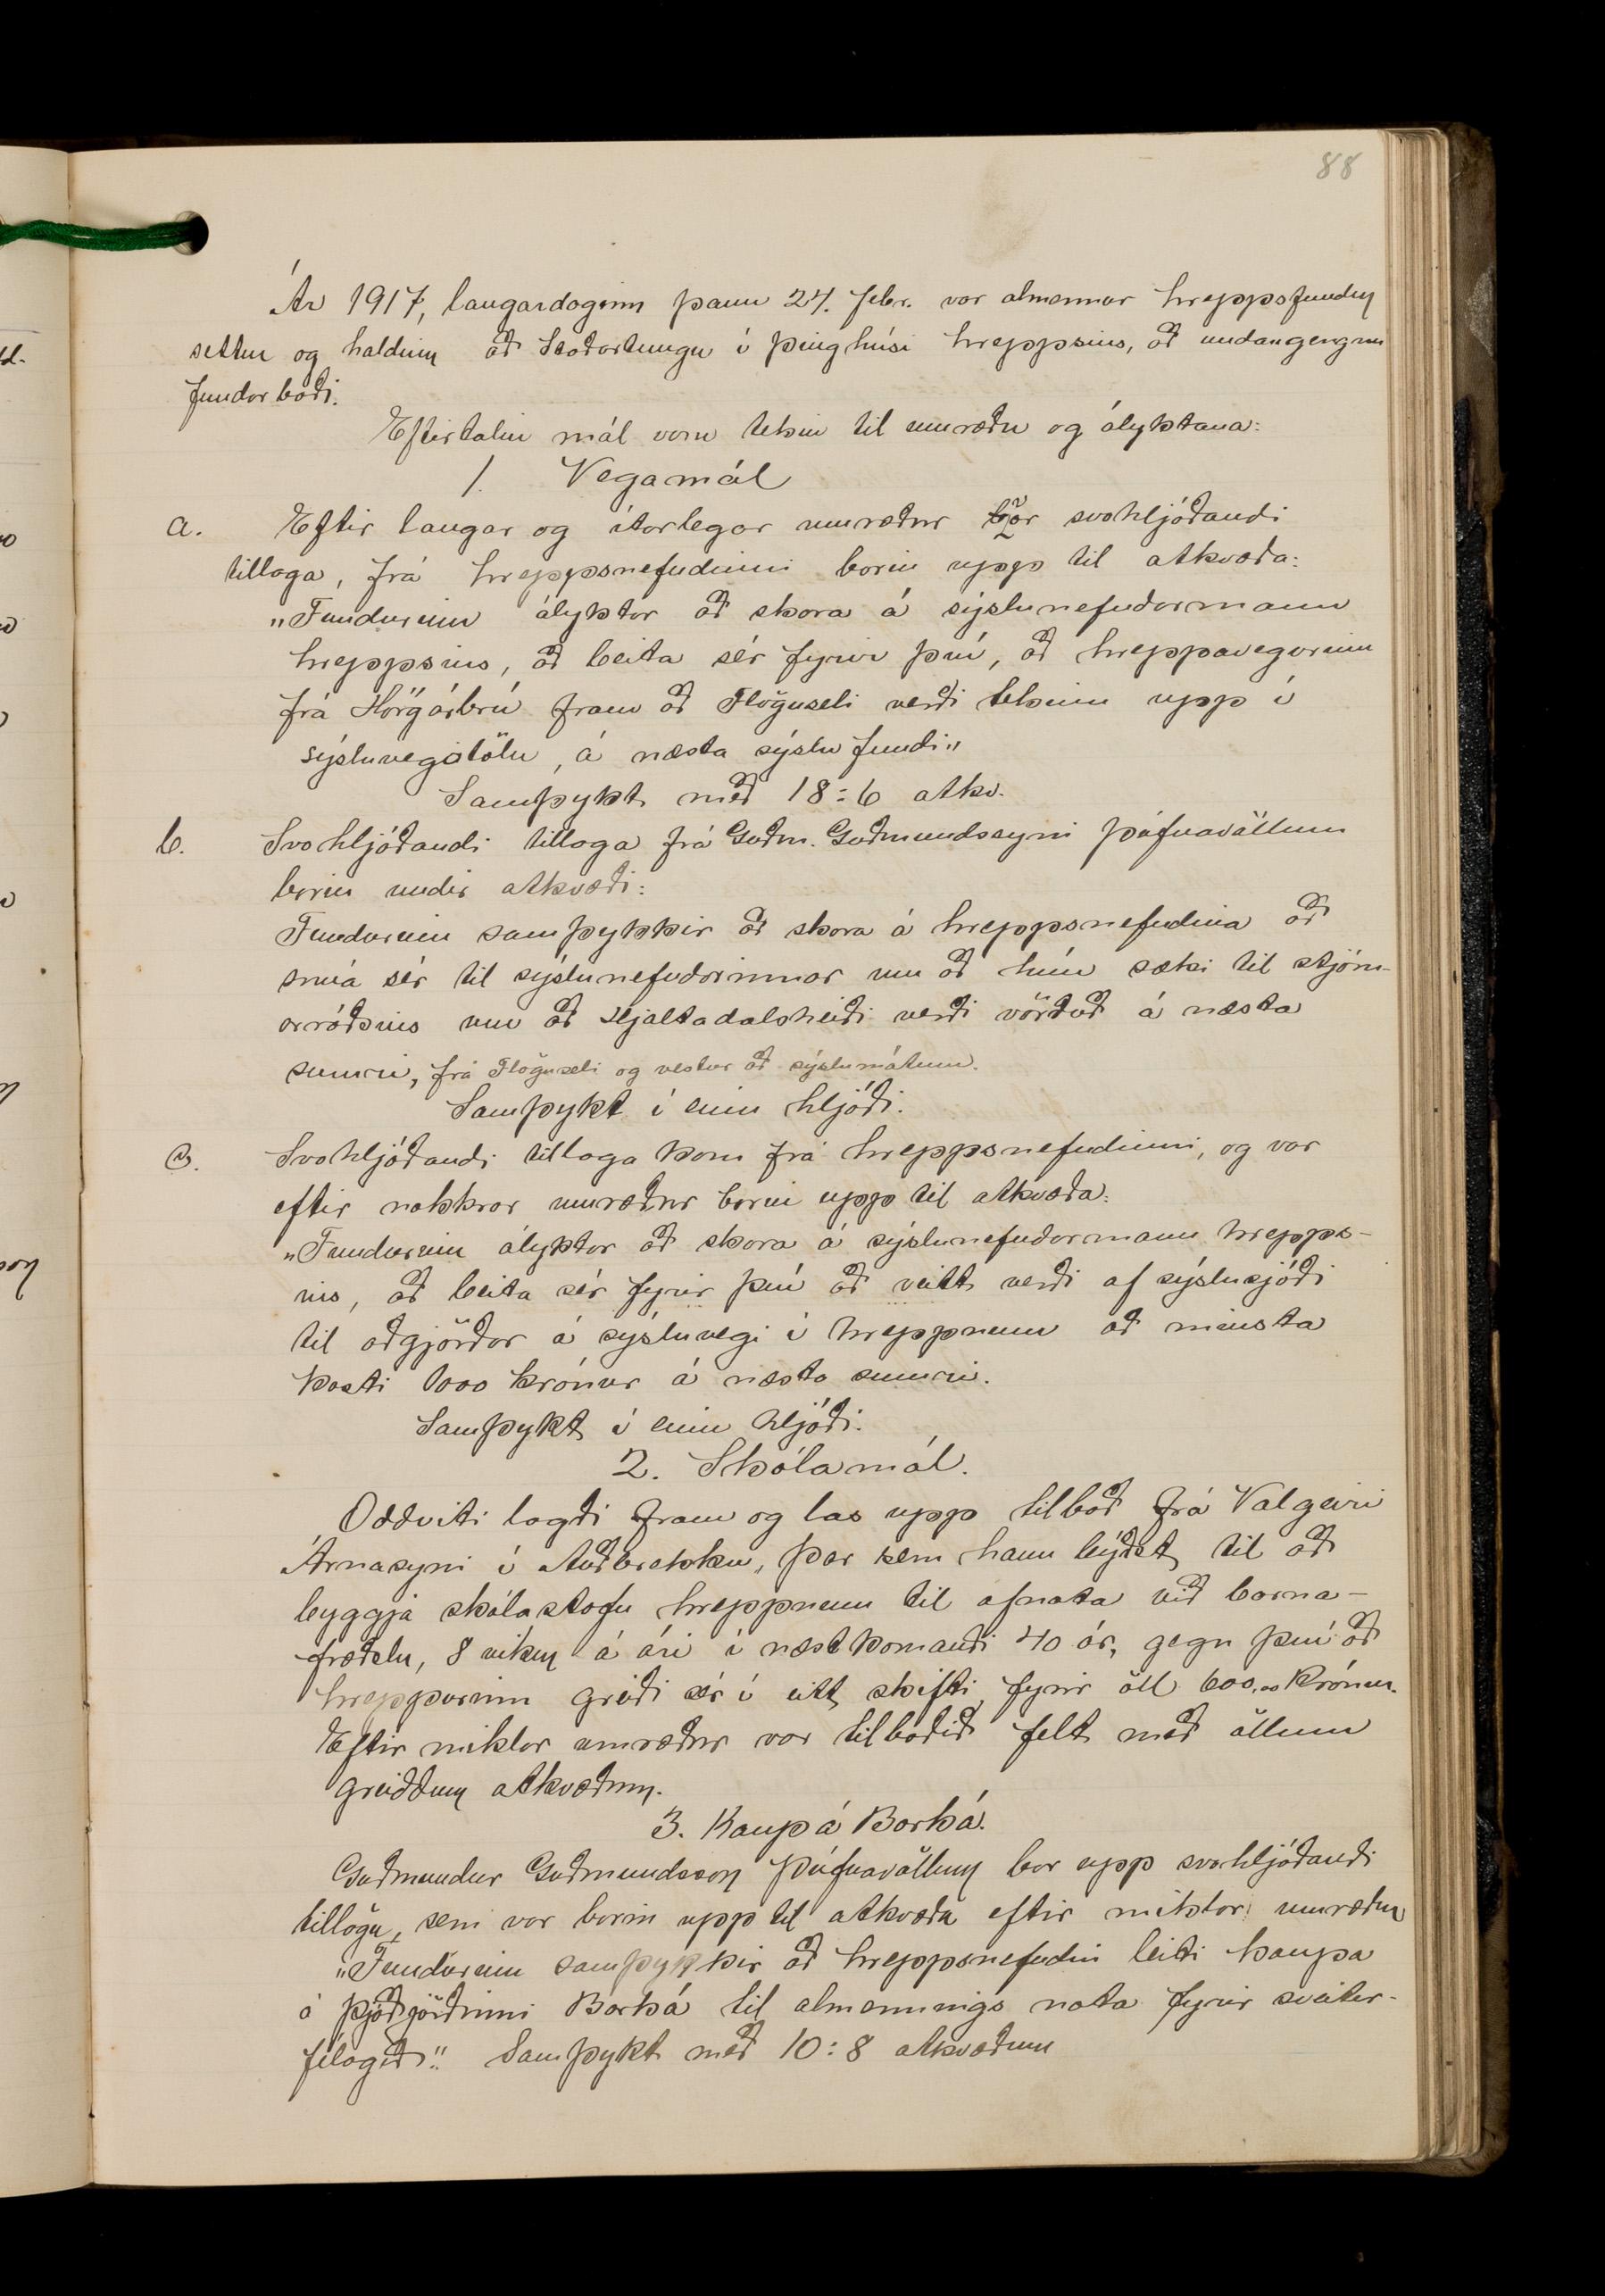 88
Ár 1917, laugardaginn þann 24. febr. var almennur hreppsfundur
settur og haldinn að Staðartungu í þinghúsi hreppsins, að undangengnu
fundarboði.
Eftirtalin mál voru tekin til umræðu og ályktana:
1. Vegamál
a. Eftir langar og ítarlegar umræður var svohljóðandi
tillaga, frá hreppsnefndinni borin upp til atkvæða:
„Fundurinn ályktar að skora á sýslunefndarmann
hreppsins, að beita sér fyrir því, að hreppavegurinn
frá Hörgárbrú fram að Flöguseli verði tekinn upp í
sýsluvegatölu, á næsta sýslufundi"
Samþykt með 18:6 atkv.
b. Svohljóðandi tillaga frá Guðm. Guðmundssyni Þúfnavöllum
borin undir atkvæði:
Fundurinn samþykkir að skora á hreppsnefndina að
snúa sér til sýslunefndarinnar um að hún sæki til stjórn-
arráðsins um að Hjaltadalsheiði verði vörðuð á næsta
sumri, frá Flöguseli og vestur að sýslumótum.
Samþykt í einu hljóði.
c. Svohljóðandi tillaga kom frá hreppsnefndinni, og var
eftir nokkrar umræður borin upp til atkvæða:
„Fundurinn ályktar að skora á sýslunefndarmann hrepps-
ins, að beita sér fyrir því að veitt verði af sýslusjóði
til aðgjörðar á sýsluvegi í hreppnum að minsta
kosti 1000 krónur á næsta sumri.
Samþykt í einu hljóði.
2. Skólamál.
Oddviti lagði fram og las upp tilboð frá Valgeiri
Árnasyni í Auðbrekku, þar sem hann býðst til að
byggja skólastofu hreppnum til afnota við barna-
fræðslu, 8 vikur á ári í næstkomandi 40 ár, gegn því að
hreppurinn greiði sér í eitt skifti fyrir öll 600,00 krónur.
Eftir miklar umræður var tilboðið felt með öllum
greiddum atkvæðum.
3. Kaup á Barká.
Guðmundur Guðmundsson Þúfnavöllum bar upp svohljóðandi
tillögu, sem var borin upp til atkvæða eftir miklar umræður
„Fundurinn samþykkir að hreppsnefndin leiti kaupa
á þjóðjörðinni Barká til almennings nota fyrir sveitar-
félagið". Samþykt með 10:8 atkvæðum